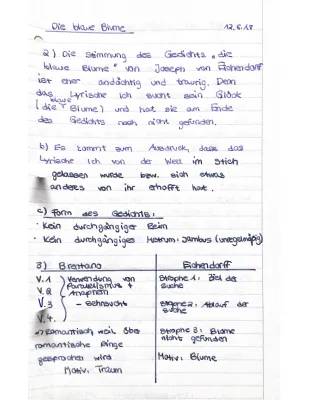 Die blaue Blume 12.6.18
2) Die Stimmung des Gedichts „die
blaue Blume" von Joseph von Eichendorff
ist eher andächtig und traurig. Denn
das Lyrische Ich sucht sein Glück
(die blaue Blume) und hat sie am Ende
des Gedichts noch nicht gefunden.
b) Es kommt zum Ausdruck, dass das
Lyrische Ich von der Welt im Stich
gelassen wurde bzw. sich etwas
anderes von ihr erhofft hat.
c) Form des Gedichts:
· Kein durchgängiger Reim
· Kein durchgängiges Metrum: Jambus (unregelmäßig)
3) Brentano
V.1 Verwendung von
V.2 Parallelismus +
Anaphern
V.3 - Sehnsucht
V.4.
=) Romantisch weil über
romantische Dinge
gesprochen wird
Motiv: Traum
Eichendorff
Strophe 1: Ziel der
Suche
Strophe 2: Ablauf der
Suche
Strophe 3: Blume
nicht gefunden
Motiv: Blume